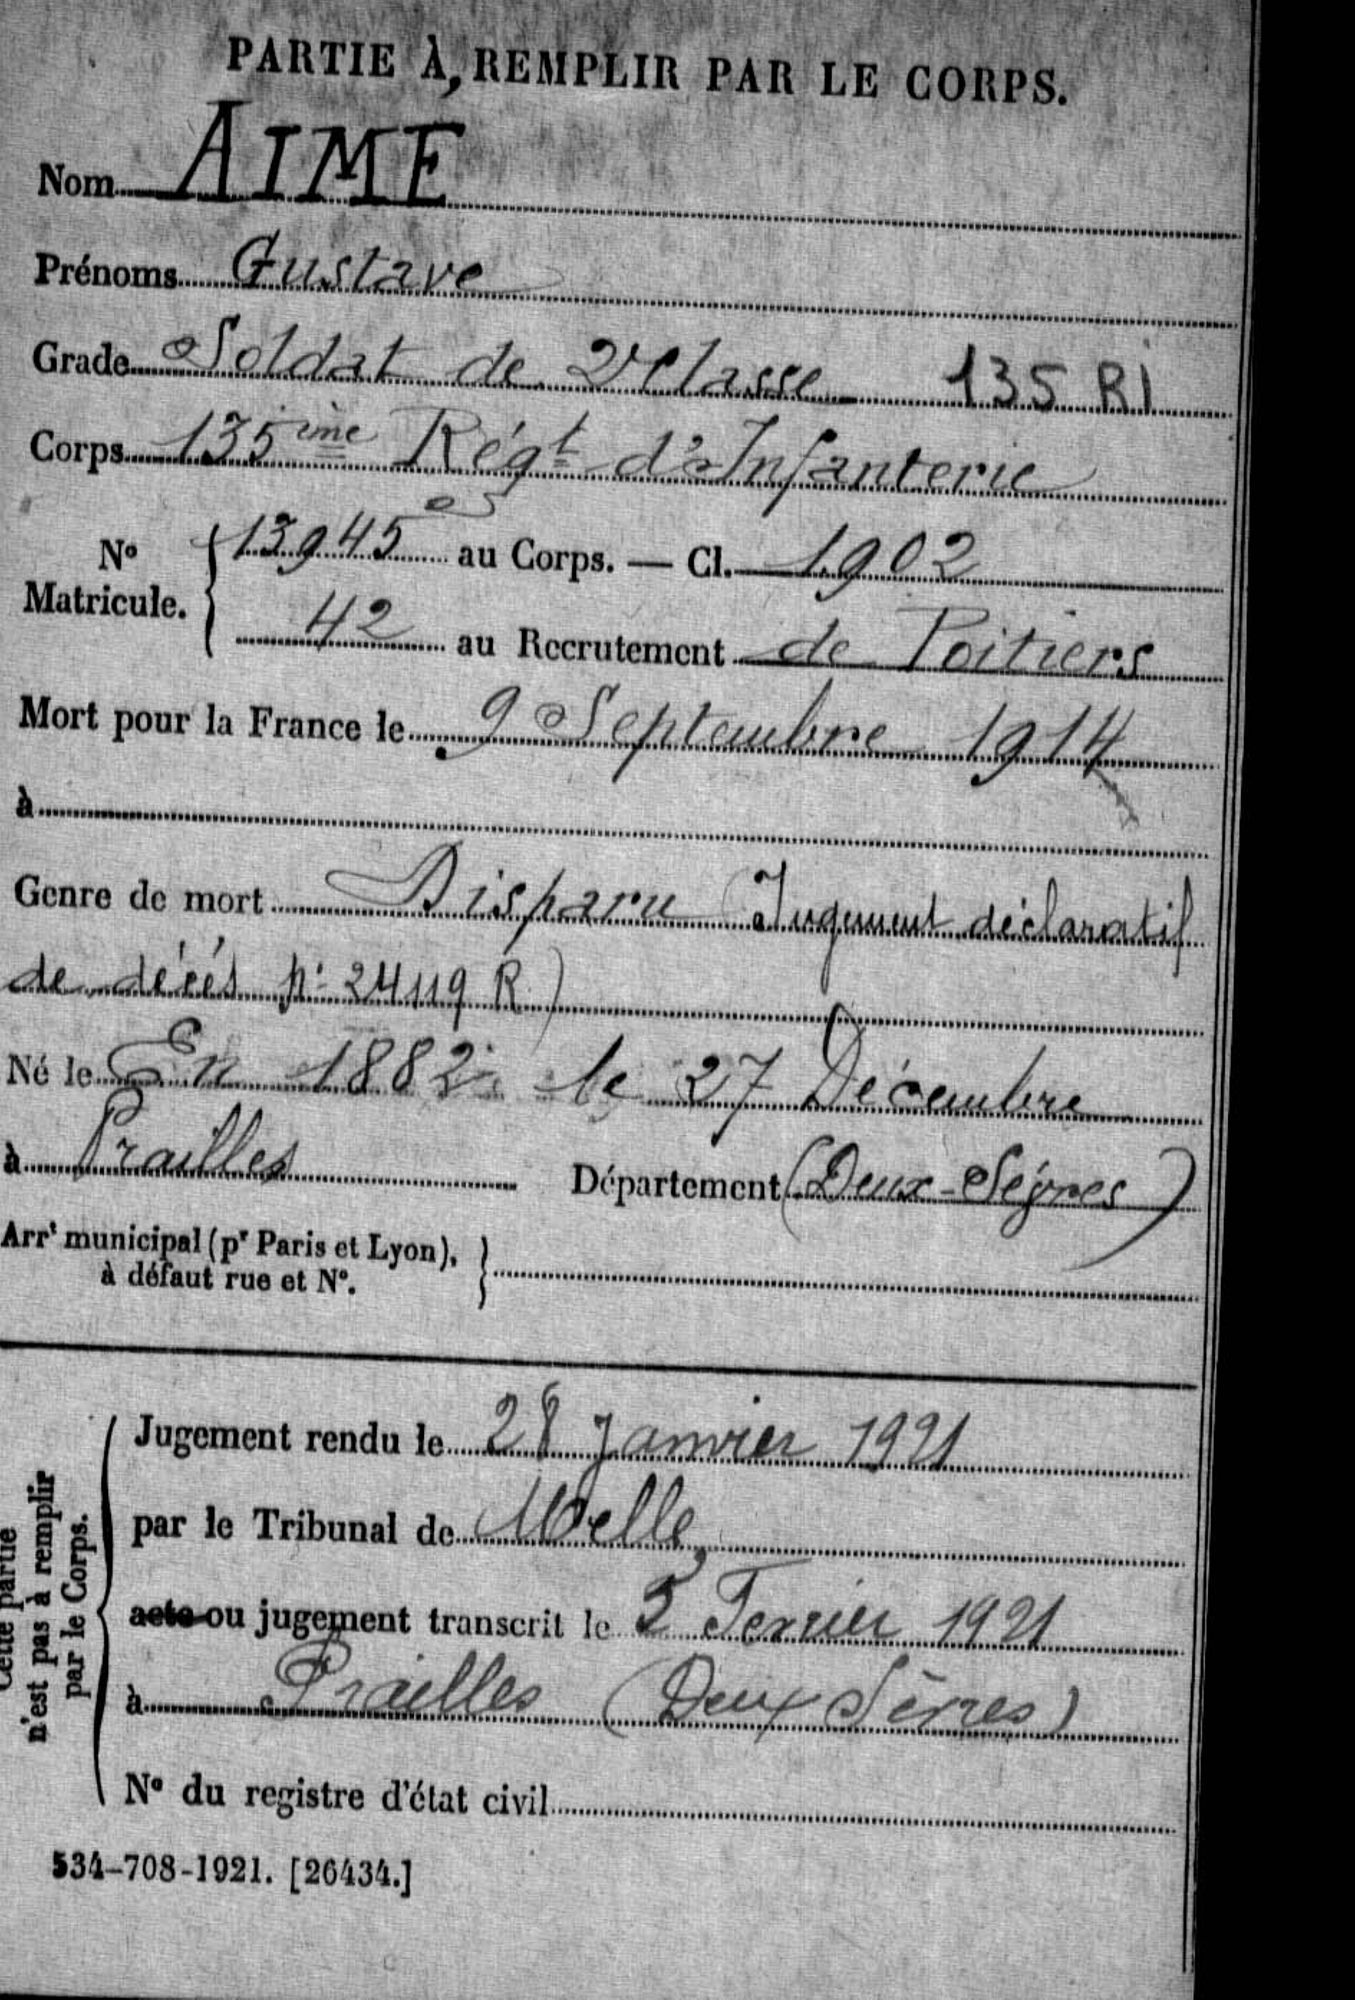 PARTIE À REMPLIR PAR LE CORPS.
Nom AIME
Prénoms Gustave
Grade Soldat de 2e Classe 135 RI
Corps 135ème Régt d'Infanterie
No Matricule. { 13945 au Corps. — Cl. 1902
42 au Recrutement de Poitiers
Mort pour la France le 9 Septembre 1914
à
Genre de mort Disparu (Jugement déclaratif
de décés n: 24119 R)
Né le En 1882 le 27 Décembre
à Prailles Département (Deux-Sévres)
Arrt municipal (pr Paris et Lyon),
à défaut rue et No. }
Cette partie
n'est pas à remplir
par le Corps.
Jugement rendu le 28 Janvier 1921
par le Tribunal de Melle
acte ou jugement transcrit le 5 Fevrier 1921
à Prailles (Deux Sèvres)
No du registre d'état civil
534-708-1921. [26434.]